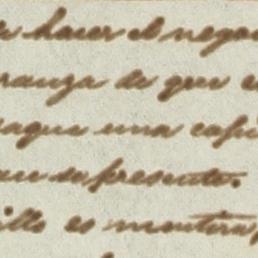 hacer el nego
ranza de que e
aque una copi
su presente.
illo es montera